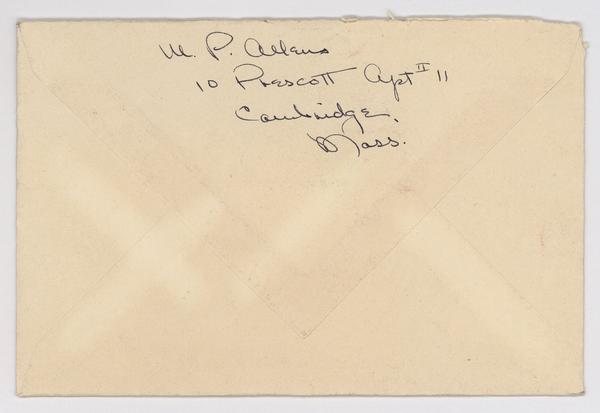 M. P. Allens
10 Prescott Apt II 11
Cambridge,
Mass.